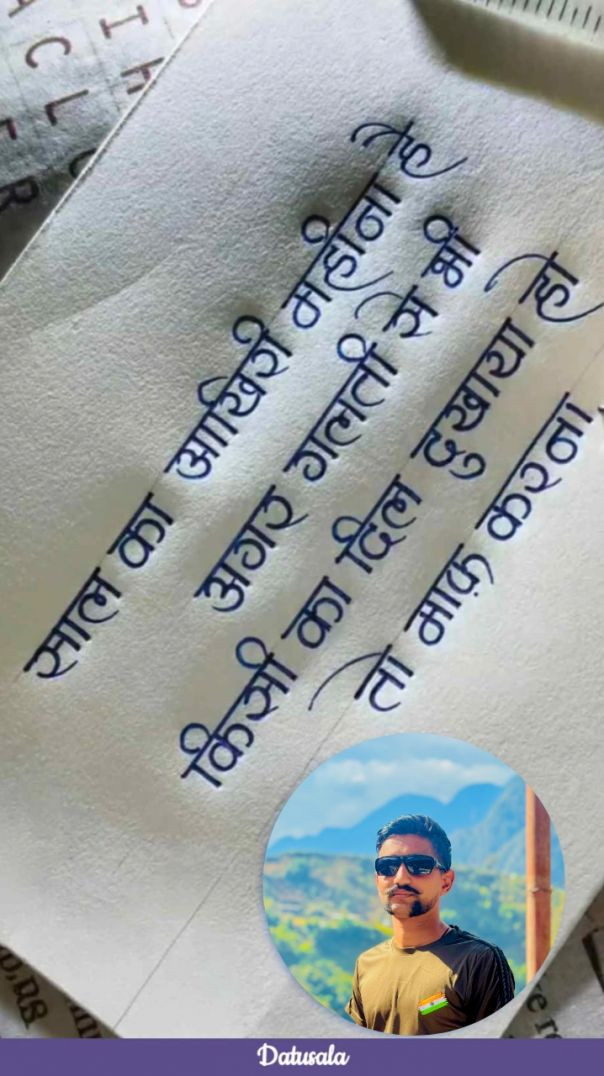 साल का आखिरी महीना है
अगर गलती से भी
किसी का दिल दुखाया हो
तो माफ़ करना
Datusala